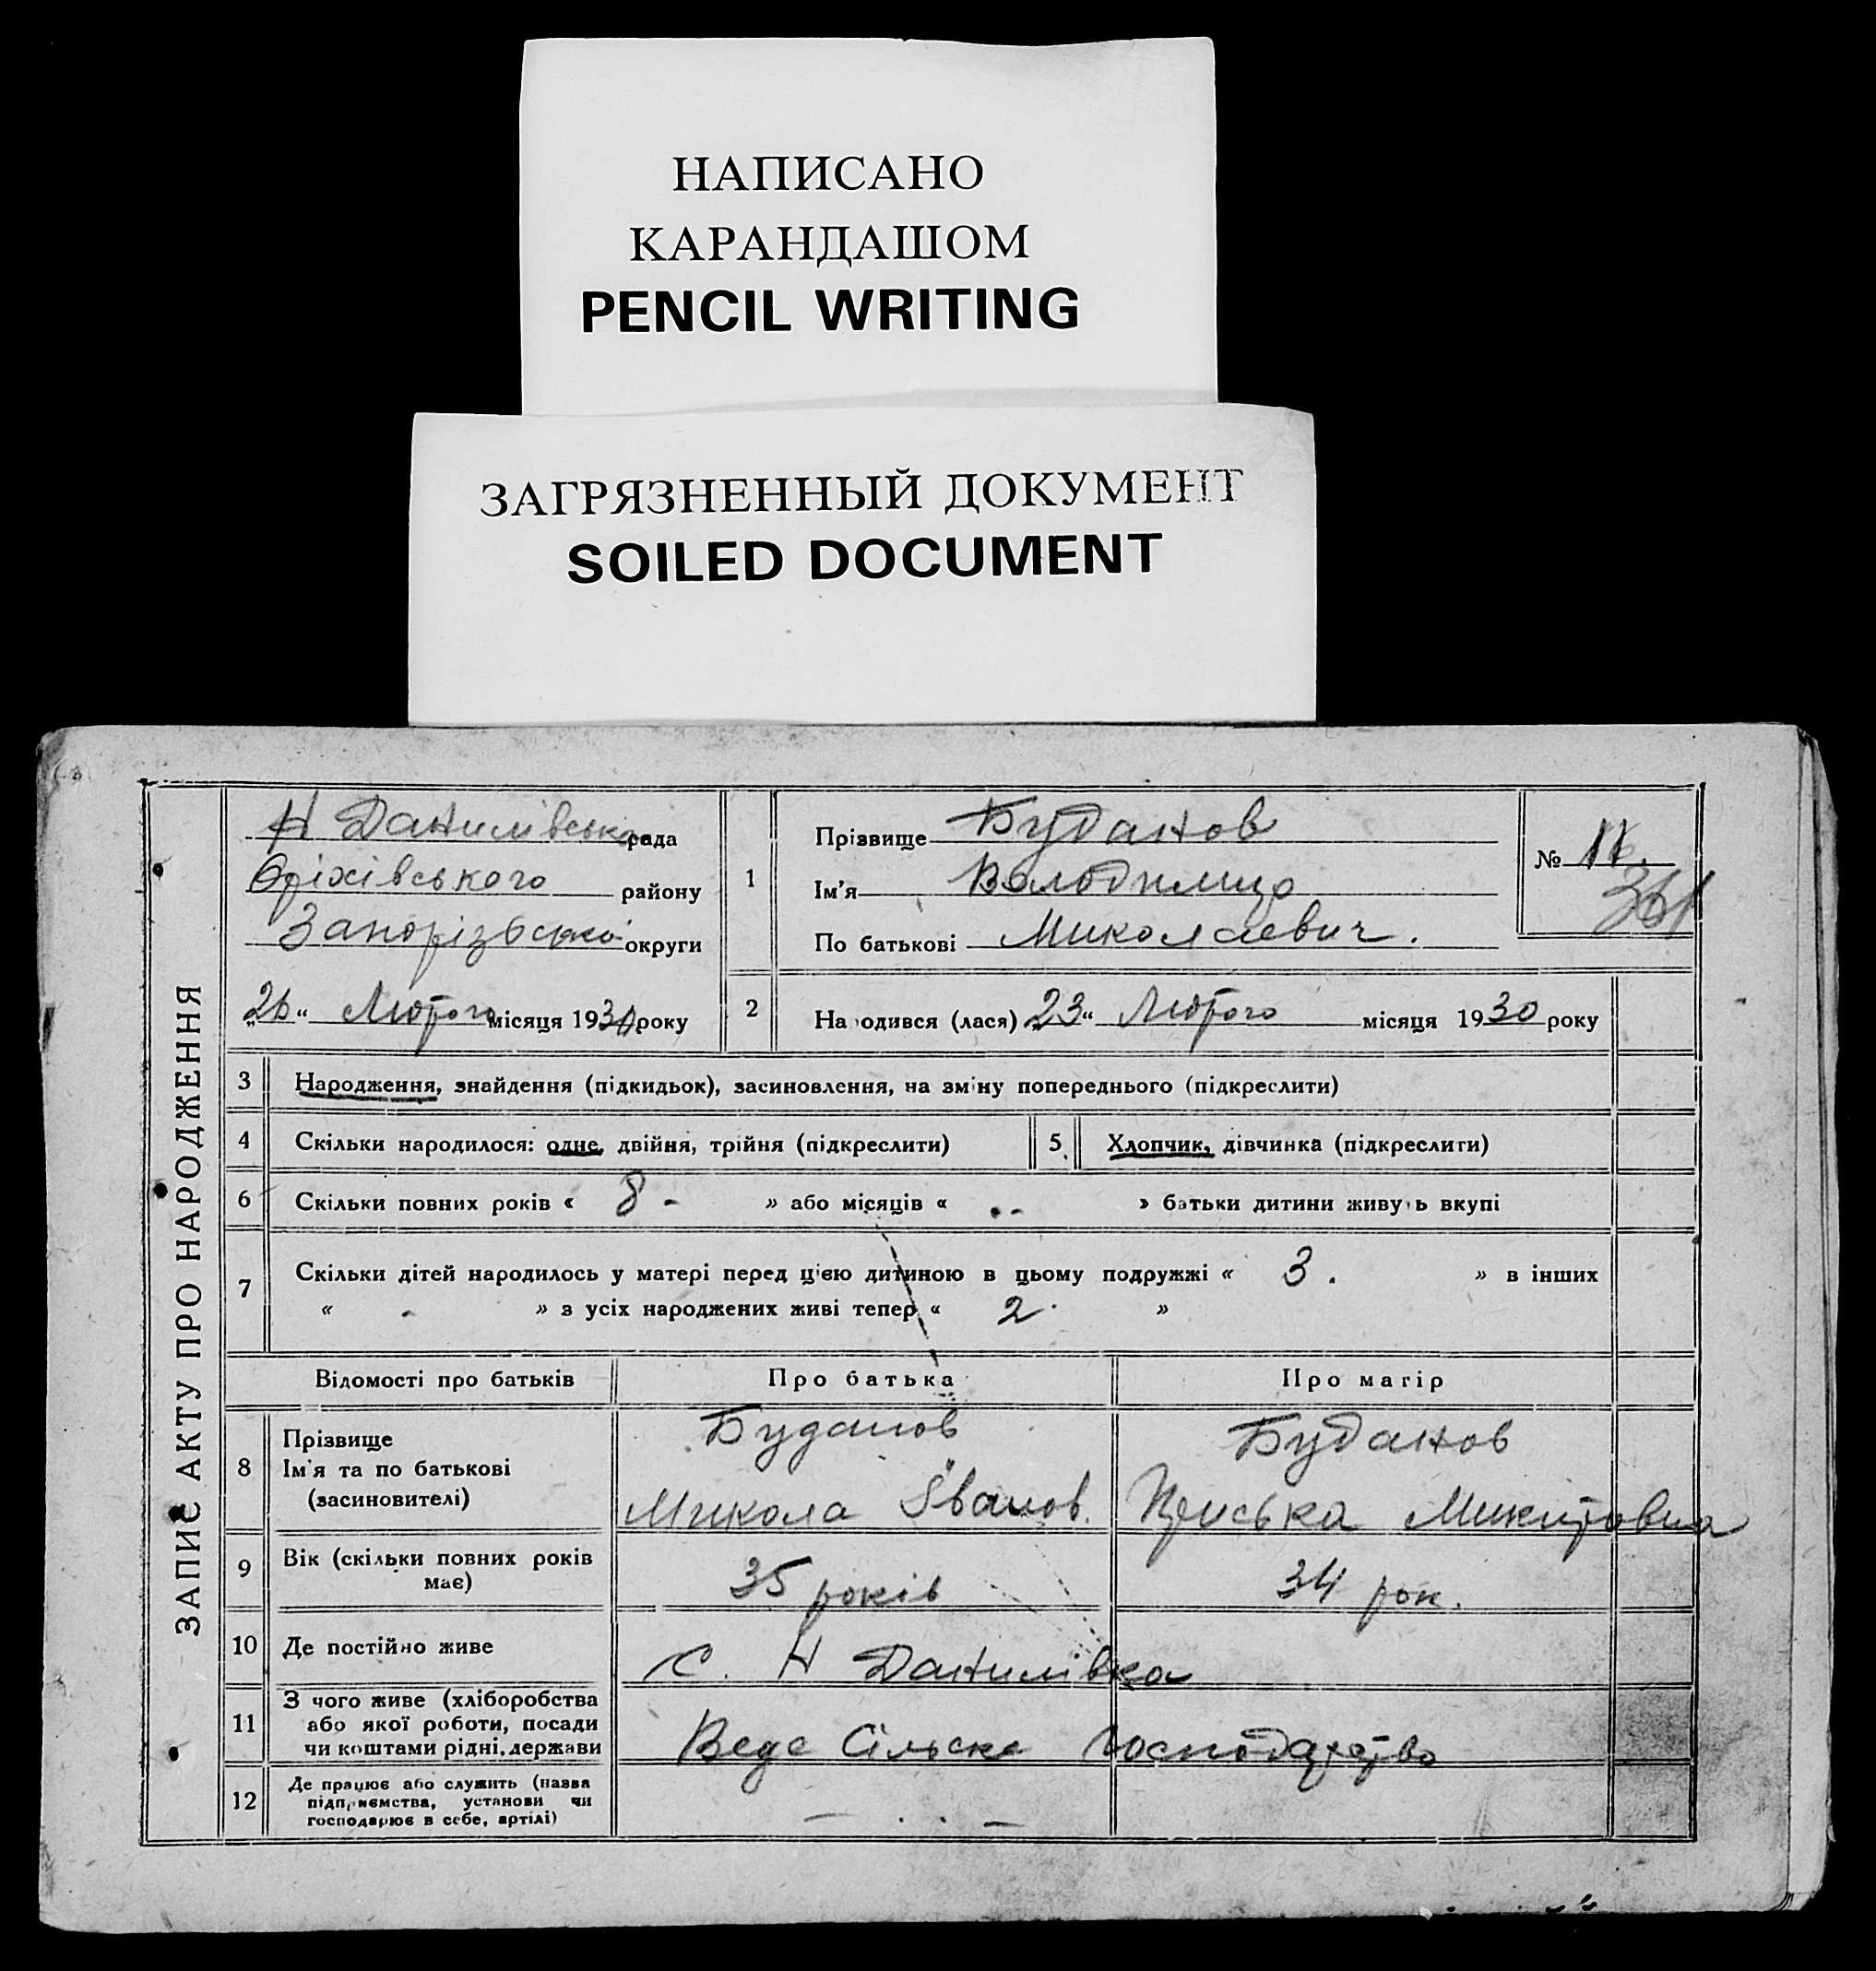 НАПИСАНО
КАРАНДАШОМ
PENCIL WRITING
ЗАГРЯЗНЕННЫЙ ДОКУМЕНТ
SOILED DOCUMENT
ЗАПИС АКТУ ПРО НАРОДЖЕННЯ
Н Данилівська рада
Оріхівського району
Запорізької округи
„26“ Лютого місяця 1930 року
1 Прізвище Буданов
Ім'я Володимир
По батькові Миколаевич.
№ 11.
2 Народився (лася) „23“ Лютого місяця 1930 року
3 Народження, знайдення (підкидьок), засиновлення, на зміну попереднього (підкреслити)
4 Скільки народилося: одне, двійня, трійня (підкреслити) 5. Хлопчик, дівчинка (підкреслити)
6 Скільки повних років « 8 - » або місяців « -- » батьки дитини живуть вкупі
7 Скільки дітей народилось у матері перед цією дитиною в цьому подружжі « 3. » в інших
« - » з усіх народжених живі тепер « 2. »
Відомості про батьків Про батька Про матір
8 Прізвище
Ім'я та по батькові
(засиновителі)
Буданов
Микола Іванов.
Буданов
Микитовна
9 Вік (скільки повних років
має)
35 років 34 рок.
10 Де постійно живе с. Н Данилівка
11 З чого живе (хліборобства
або якої роботи, посади
чи коштами рідні, держави
Веде Сільске господарство
12 Де працює або служить (назва
підприємства, установи чи
господарює в себе, артілі)